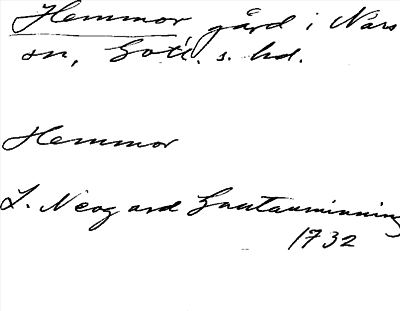 Hemmor, gård i Närs
sn, Gotl. s. hd.
Hemmor
L. Neogard Gautauminning
1732